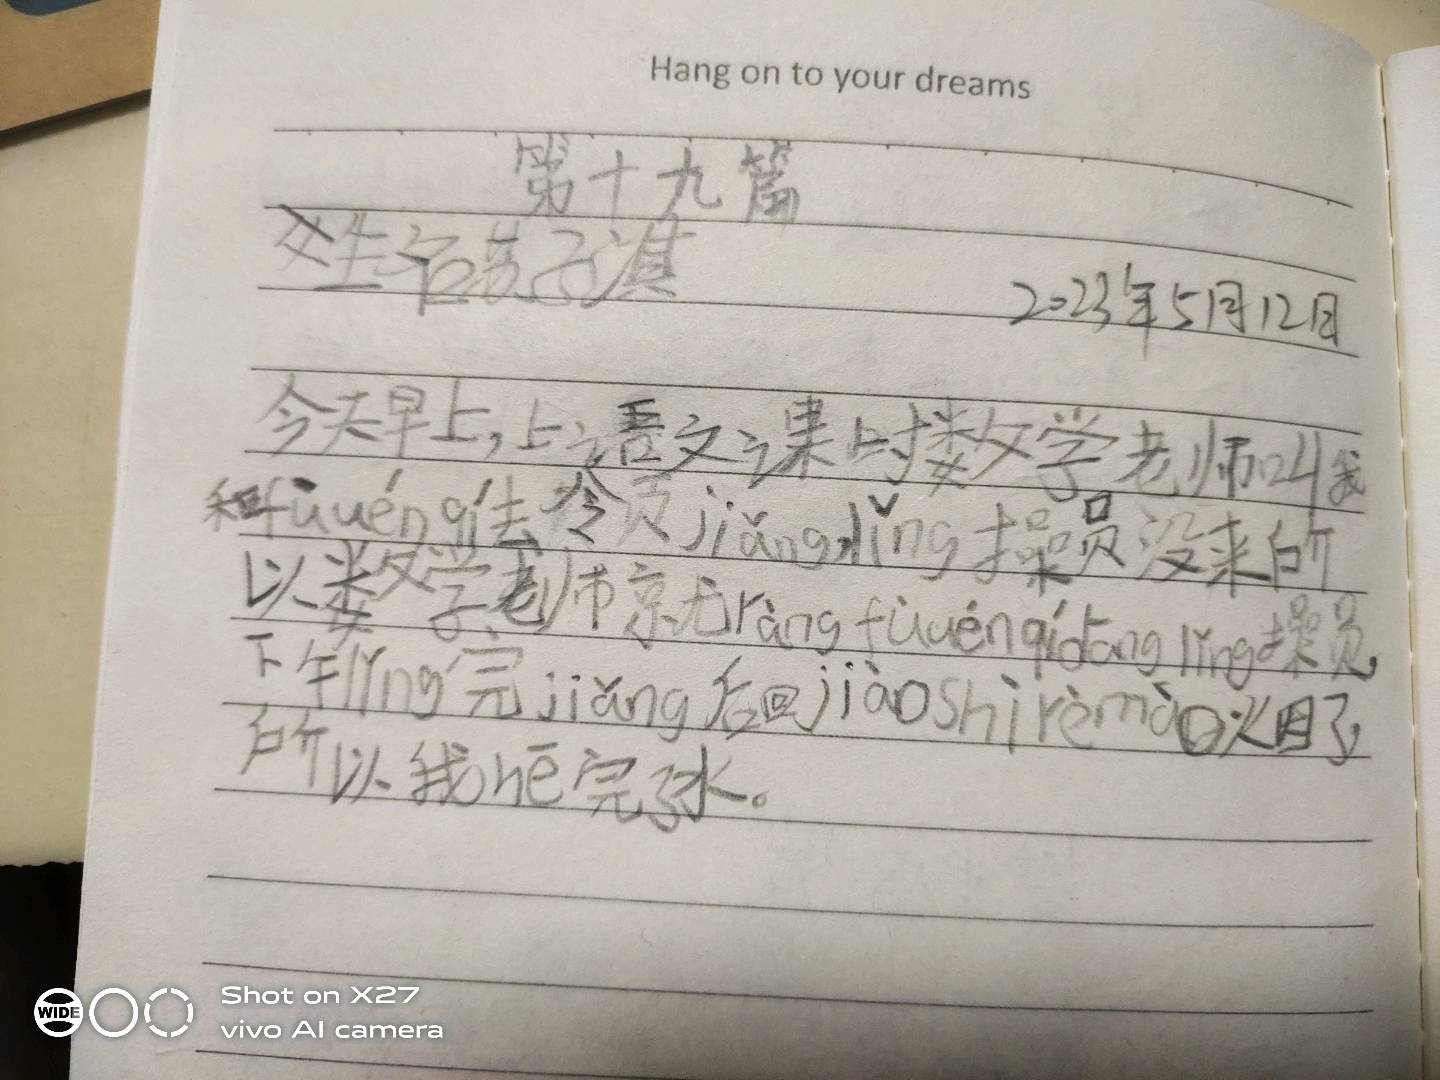 Hang on to your dreams
第十九篇
姓名黄子淇
2023年5月12日
今天早上,上语文课时数学老师叫我
和fùwénqí去领jiǎng,lǐng操员没来所
以数学老师京尤ràng fùwénqí dāng lǐng操员,
下午lǐng完jiǎng后回jiàoshì rèmào火因了,
所以我hē完了水。
WIDE
Shot on X27
vivo AI camera